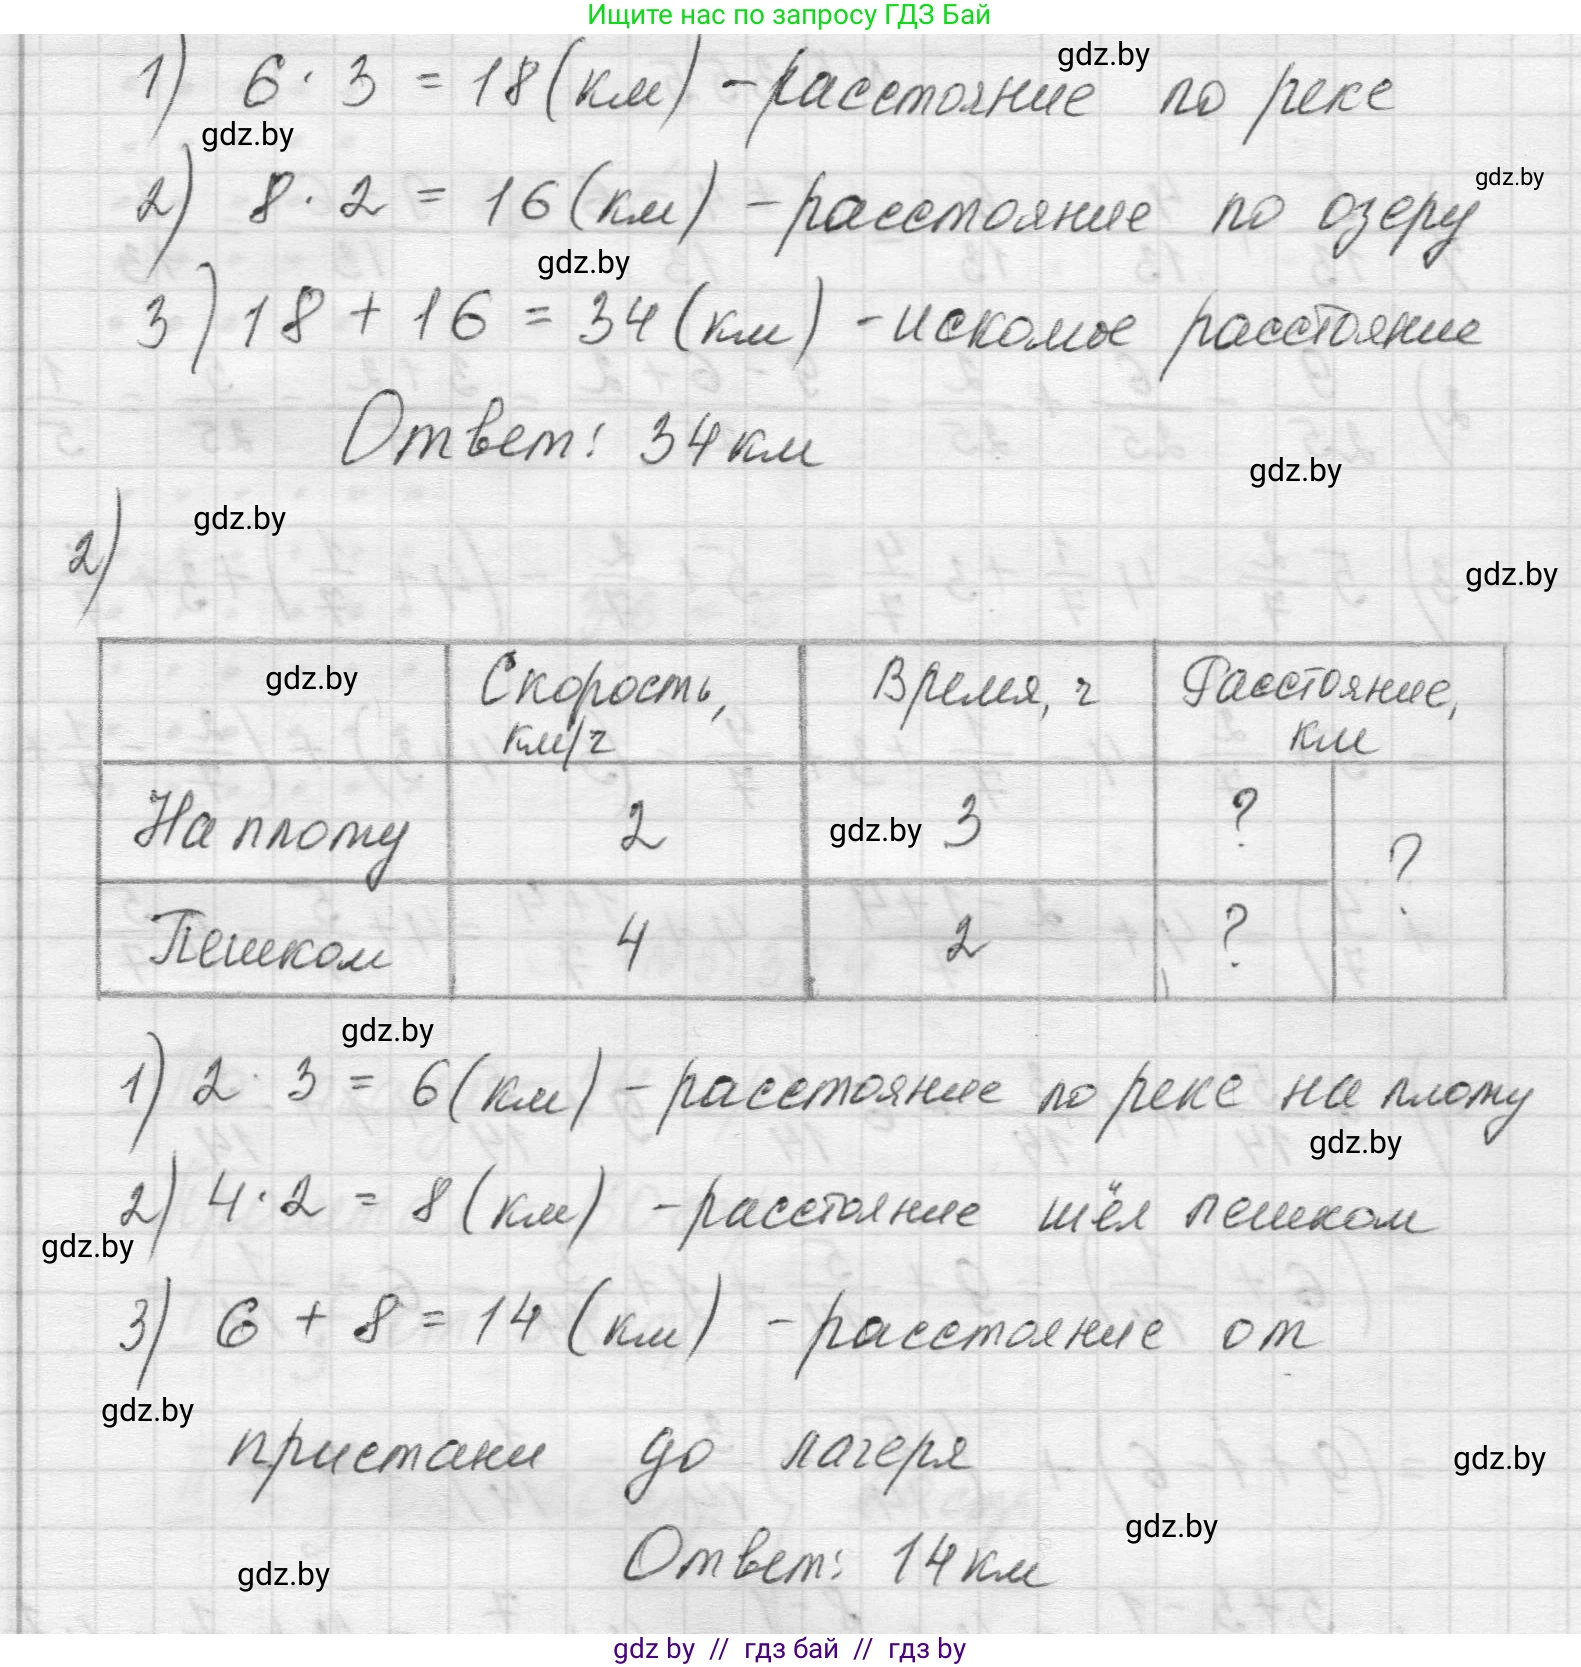 Ищите нас по запросу ГДЗ Бай
gdz.by
1) 6 · 3 = 18 (км) - расстояние по реке
gdz.by
gdz.by
2) 8 · 2 = 16 (км) - расстояние по озеру
gdz.by
3) 18 + 16 = 34 (км) - искомое расстояние
Ответ: 34 км
gdz.by
gdz.by
2)
gdz.by
gdz.by Скорость, км/ч Время, ч Расстояние, км
На плоту 2 gdz.by 3 ? ?
Пешком 4 2 ?
gdz.by
1) 2 · 3 = 6 (км) - расстояние по реке на плоту
gdz.by
2) 4 · 2 = 8 (км) - расстояние шёл пешком
gdz.by
3) 6 + 8 = 14 (км) - расстояние от
gdz.by
пристани до лагеря
gdz.by
gdz.by
Ответ: 14 км
gdz.by
gdz by // гдз бай // гдз by